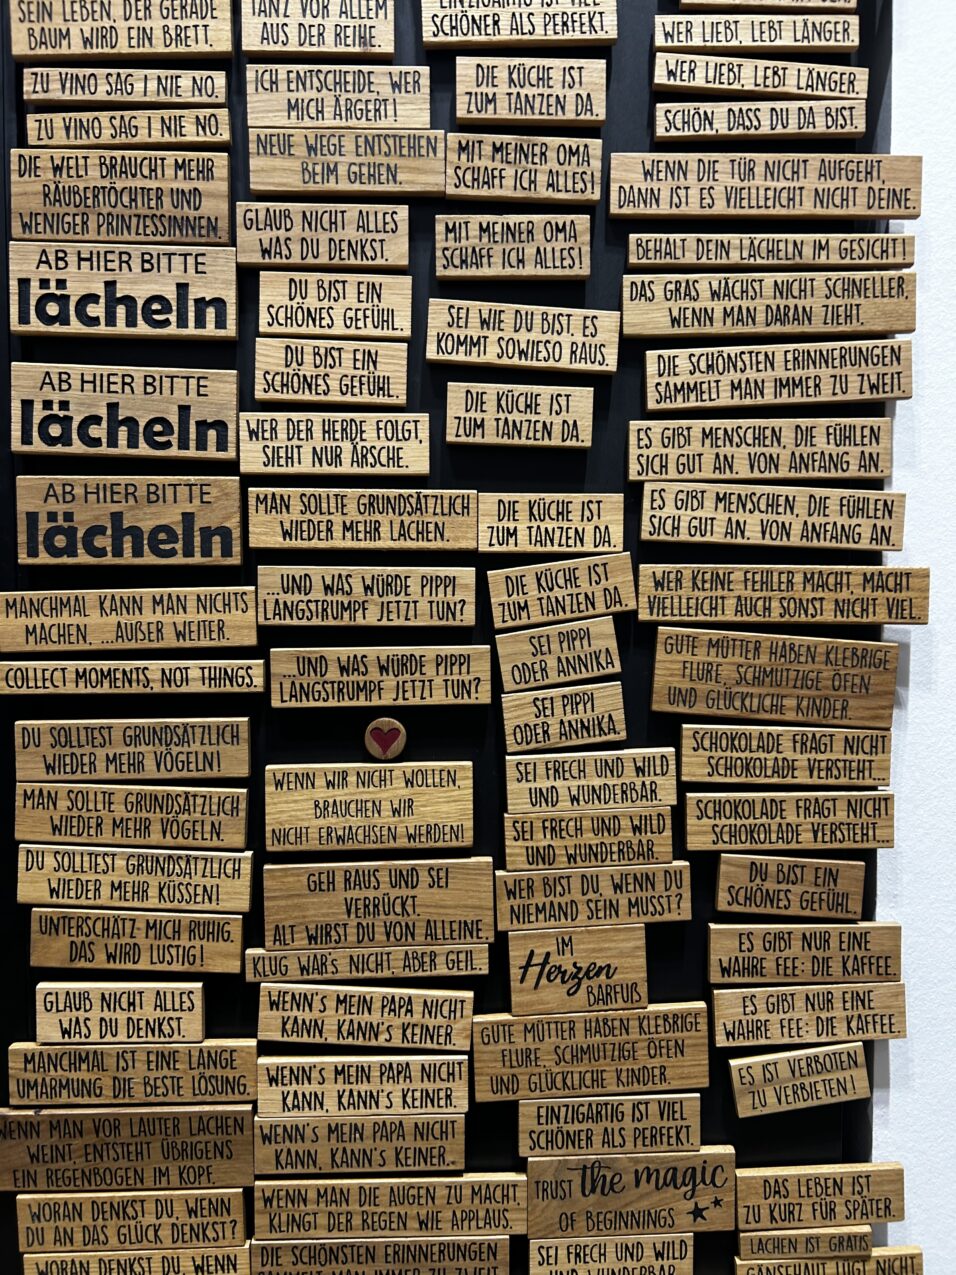 SEIN LEBEN, DER GERADE
BAUM WIRD EIN BRETT.
ZU VINO SAG I NIE NO.
ZU VINO SAG I NIE NO.
DIE WELT BRAUCHT MEHR
RÄUBERTÖCHTER UND
WENIGER PRINZESSINNEN.
AB HIER BITTE
lächeln
AB HIER BITTE
lächeln
AB HIER BITTE
lächeln
MANCHMAL KANN MAN NICHTS
MACHEN, ...AUßER WEITER.
COLLECT MOMENTS, NOT THINGS.
DU SOLLTEST GRUNDSÄTZLICH
WIEDER MEHR VÖGELN!
MAN SOLLTE GRUNDSÄTZLICH
WIEDER MEHR VÖGELN.
DU SOLLTEST GRUNDSÄTZLICH
WIEDER MEHR KÜSSEN!
UNTERSCHÄTZ MICH RUHIG.
DAS WIRD LUSTIG!
GLAUB NICHT ALLES
WAS DU DENKST.
MANCHMAL IST EINE LANGE
UMARMUNG DIE BESTE LÖSUNG.
WENN MAN VOR LAUTER LACHEN
WEINT, ENTSTEHT ÜBRIGENS
EIN REGENBOGEN IM KOPF.
WORAN DENKST DU, WENN
DU AN DAS GLÜCK DENKST?
WORAN DENKST DU, WENN
TANZ VOR ALLEM
AUS DER REIHE.
ICH ENTSCHEIDE, WER
MICH ÄRGERT!
NEUE WEGE ENTSTEHEN
BEIM GEHEN.
GLAUB NICHT ALLES
WAS DU DENKST.
DU BIST EIN
SCHÖNES GEFÜHL.
DU BIST EIN
SCHÖNES GEFÜHL.
WER DER HERDE FOLGT,
SIEHT NUR ÄRSCHE.
MAN SOLLTE GRUNDSÄTZLICH
WIEDER MEHR LACHEN.
...UND WAS WÜRDE PIPPI
LANGSTRUMPF JETZT TUN?
...UND WAS WÜRDE PIPPI
LANGSTRUMPF JETZT TUN?
WENN WIR NICHT WOLLEN,
BRAUCHEN WIR
NICHT ERWACHSEN WERDEN!
GEH RAUS UND SEI
VERRÜCKT.
ALT WIRST DU VON ALLEINE.
KLUG WAR'S NICHT, ABER GEIL.
WENN'S MEIN PAPA NICHT
KANN, KANN'S KEINER.
WENN'S MEIN PAPA NICHT
KANN, KANN'S KEINER.
WENN'S MEIN PAPA NICHT
KANN, KANN'S KEINER.
WENN MAN DIE AUGEN ZU MACHT,
KLINGT DER REGEN WIE APPLAUS.
DIE SCHÖNSTEN ERINNERUNGEN
SAMMELT MAN IMMER ZU ZWEIT.
EINZIGARTIG IST VIEL
SCHÖNER ALS PERFEKT.
DIE KÜCHE IST
ZUM TANZEN DA.
MIT MEINER OMA
SCHAFF ICH ALLES!
MIT MEINER OMA
SCHAFF ICH ALLES!
SEI WIE DU BIST, ES
KOMMT SOWIESO RAUS.
DIE KÜCHE IST
ZUM TANZEN DA.
DIE KÜCHE IST
ZUM TANZEN DA.
DIE KÜCHE IST
ZUM TANZEN DA.
SEI PIPPI
ODER ANNIKA
SEI PIPPI
ODER ANNIKA.
SEI FRECH UND WILD
UND WUNDERBAR.
SEI FRECH UND WILD
UND WUNDERBAR.
WER BIST DU, WENN DU
NIEMAND SEIN MUSST?
IM
Herzen
BARFUß
GUTE MÜTTER HABEN KLEBRIGE
FLURE, SCHMUTZIGE ÖFEN
UND GLÜCKLICHE KINDER.
EINZIGARTIG IST VIEL
SCHÖNER ALS PERFEKT.
TRUST the magic
OF BEGINNINGS
SEI FRECH UND WILD
UND WUNDERBAR.
WER LIEBT, LEBT LÄNGER.
WER LIEBT, LEBT LÄNGER.
SCHÖN, DASS DU DA BIST.
WENN DIE TÜR NICHT AUFGEHT,
DANN IST ES VIELLEICHT NICHT DEINE.
BEHALT DEIN LÄCHELN IM GESICHT!
DAS GRAS WÄCHST NICHT SCHNELLER,
WENN MAN DARAN ZIEHT.
DIE SCHÖNSTEN ERINNERUNGEN
SAMMELT MAN IMMER ZU ZWEIT.
ES GIBT MENSCHEN, DIE FÜHLEN
SICH GUT AN. VON ANFANG AN.
ES GIBT MENSCHEN, DIE FÜHLEN
SICH GUT AN. VON ANFANG AN.
WER KEINE FEHLER MACHT, MACHT
VIELLEICHT AUCH SONST NICHT VIEL.
GUTE MÜTTER HABEN KLEBRIGE
FLURE, SCHMUTZIGE ÖFEN
UND GLÜCKLICHE KINDER.
SCHOKOLADE FRAGT NICHT
SCHOKOLADE VERSTEHT...
SCHOKOLADE FRAGT NICHT
SCHOKOLADE VERSTEHT...
DU BIST EIN
SCHÖNES GEFÜHL.
ES GIBT NUR EINE
WAHRE FEE: DIE KAFFEE.
ES GIBT NUR EINE
WAHRE FEE: DIE KAFFEE.
ES IST VERBOTEN
ZU VERBIETEN!
DAS LEBEN IST
ZU KURZ FÜR SPÄTER.
LACHEN IST GRATIS
GÄNSEHAUT LÜGT NICHT